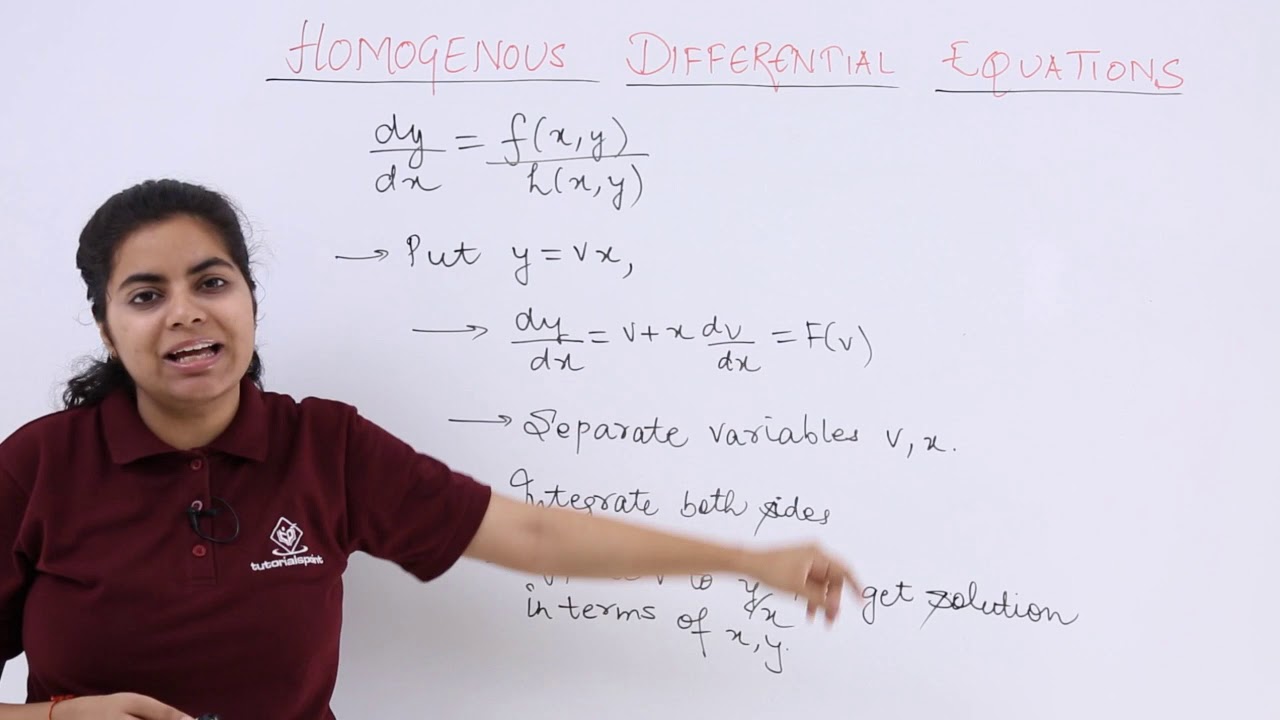 HOMOGENOUS DIFFERENTIAL EQUATIONS
dy/dx = f(x,y)/h(x,y)
→ Put y = vx,
→ dy/dx = v + x dv/dx = F(v)
→ Separate variables v, x.
Integrate both sides
v to y/x get solution
in terms of x, y.
tutorialspoint